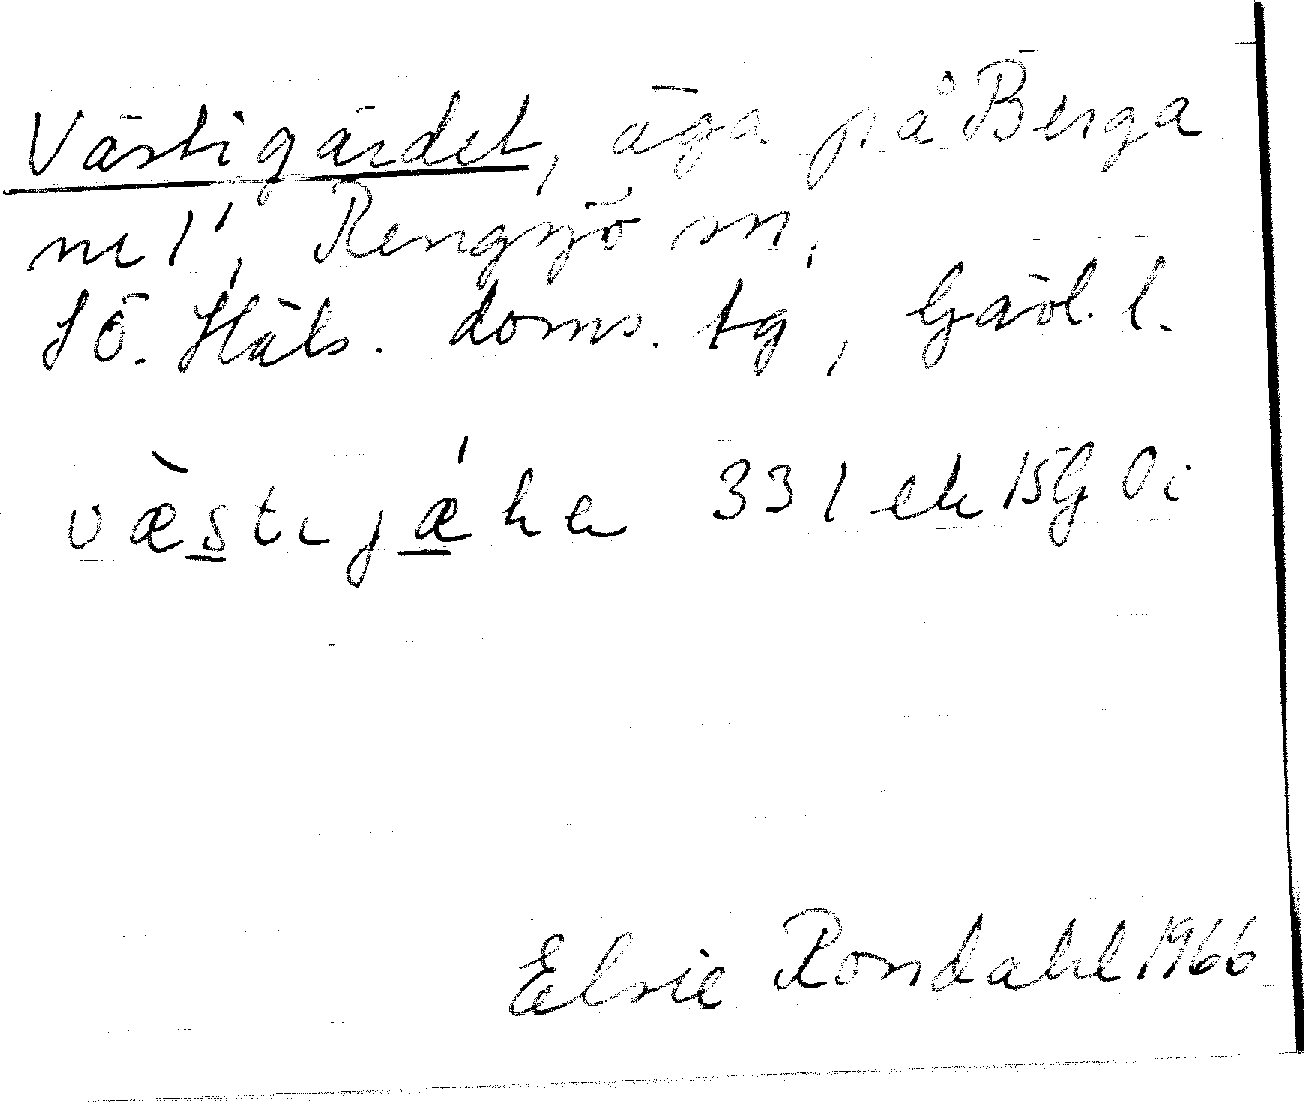 Västigärdet, äga på Berga
nr 1, Rengsjö sn,
Sö. Häls. doms. tg, Gävl. l.
væstɩjæ
33 1 ek 15G 0i
Elsie Rondahl 1966